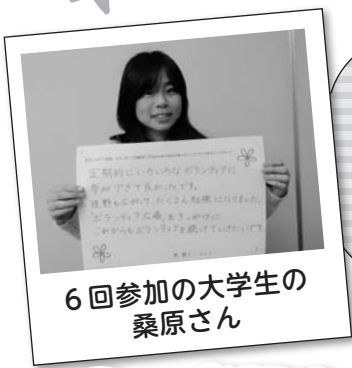 定期的にいろいろなボランティアに
参加できて良かったです。
視野も広がり、たくさん勉強になりました。
「ボランティア広場」をきっかけに
これからもボランティアを続けていきたいです。
6回参加の大学生の
桑原さん